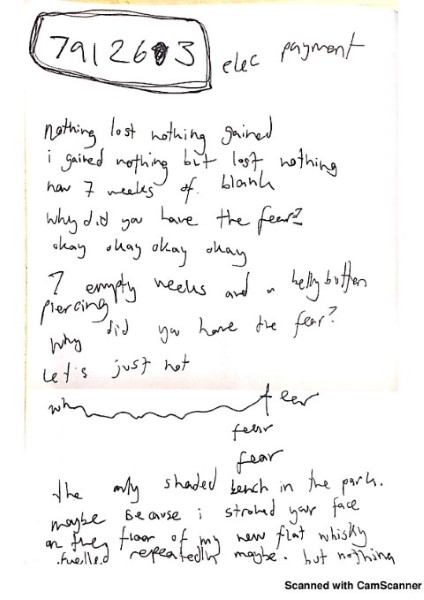 7912603 elec payment
nothing lost nothing gained
i gained nothing but lost nothing
now 7 weeks of blank
why did you have the fear?
okay okay okay okay
7 empty weeks and a bellybutton
piercing
why did you have the fear?
Let's just not
wh fear
fear
fear
The only shaded bench in the park.
maybe Because i stroked your face
on the floor of my new flat whisky
fuelled repeatedly maybe. but nothing
Scanned with CamScanner